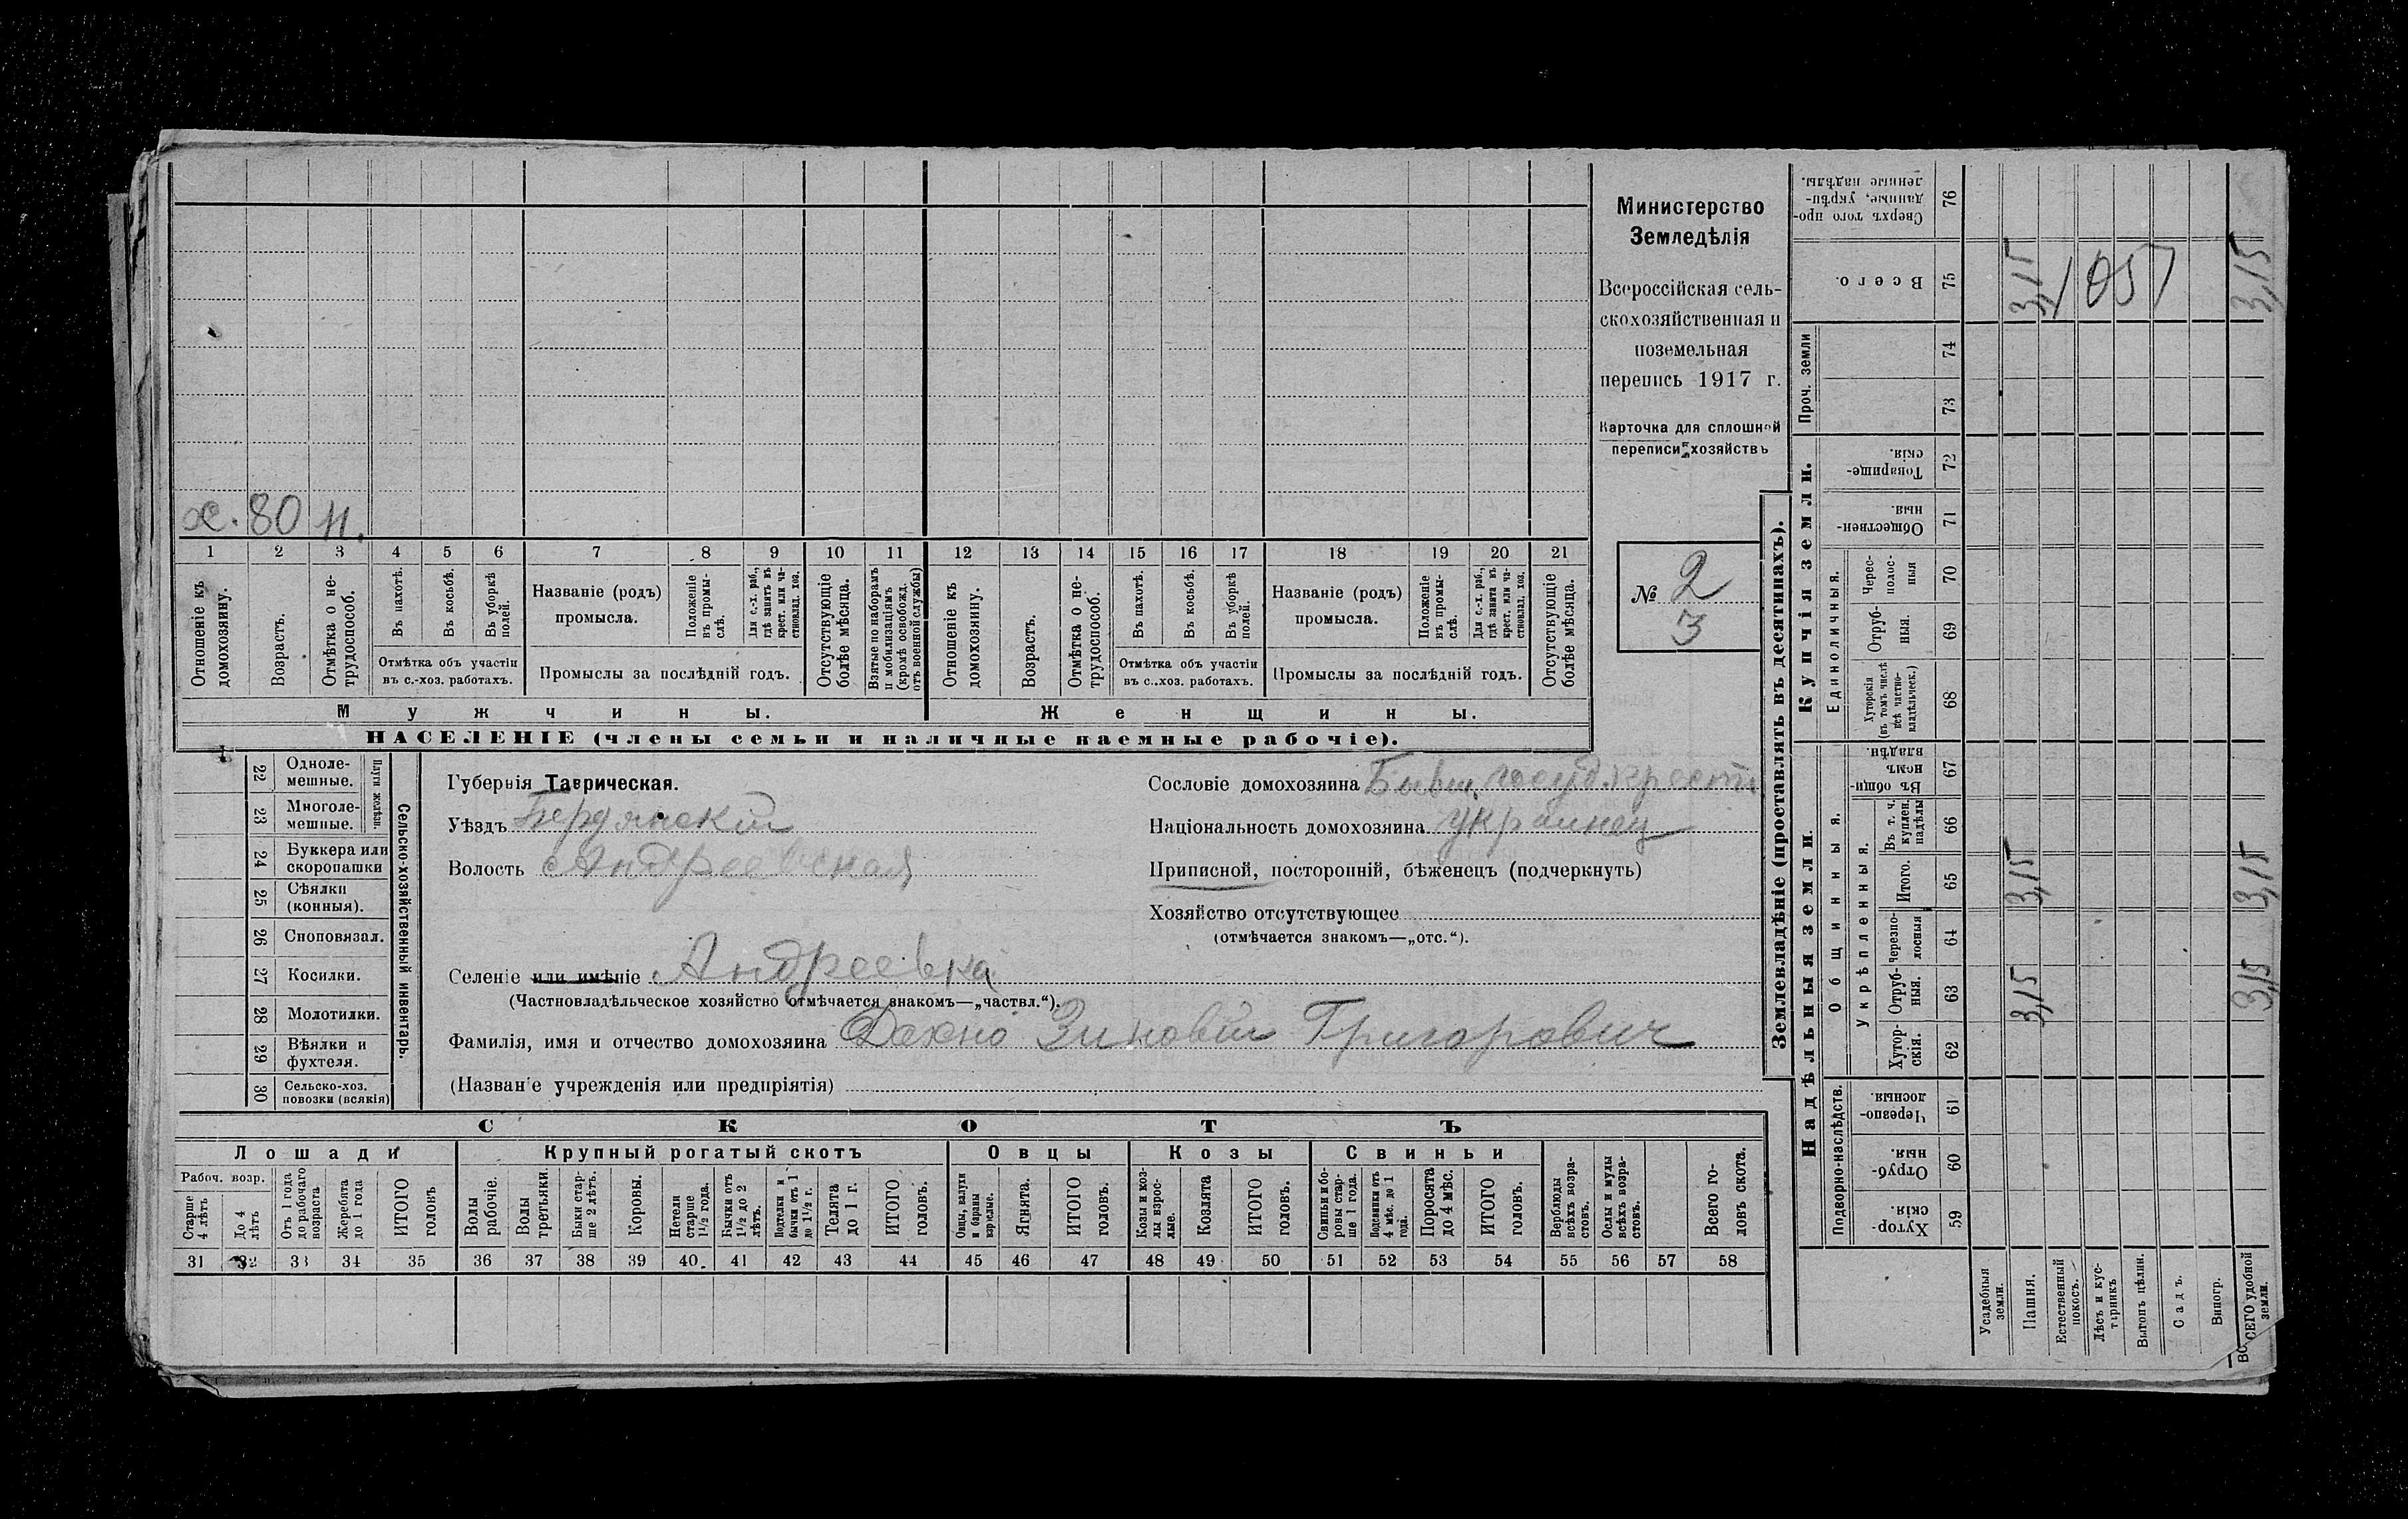 Министерство
Земледѣлія
Всероссійская сель-
скохозяйственная и
поземельная
перепись 1917 г.
Карточка для сплошной
переписи хозяйствъ
№ 2
3
х. 80 н.
1 2 3 4 5 6 7 8 9 10 11 12 13 14 15 16 17 18 19 20 21
Отношеніе къ домохозяину.
Возрастъ.
Отмѣтка о не-трудоспособ.
Въ пахотѣ.
Въ косьбѣ.
Въ уборкѣ полей.
Отмѣтка объ участіи
въ с.-хоз. работахъ.
Названіе (родъ)
промысла.
Положеніе въ промы-слѣ.
Для с.-х. раб., гдѣ занятъ въ крест. или ча-стновлад. хоз.
Промыслы за послѣдній годъ.
Отсутствующіе болѣе мѣсяца.
Взятые по наборамъ и мобилизаціямъ (кромѣ освобожд. отъ военной службы)
Отношеніе къ домохозяину.
Возрастъ.
Отмѣтка о не-трудоспособ.
Въ пахотѣ.
Въ косьбѣ.
Въ уборкѣ полей.
Отмѣтка объ участіи
въ с.-хоз. работахъ.
Названіе (родъ)
промысла.
Положеніе въ промы-слѣ.
Для с.-х. раб., гдѣ занята въ крест. или ча-стновлад. хоз.
Промыслы за послѣдній годъ.
Отсутствующіе болѣе мѣсяца.
Мужчины.
Женщины.
НАСЕЛЕНІЕ (члены семьи и наличные наемные рабочіе).
Сельско-хозяйственный инвентарь.
Плуги желѣзн.
22 Одноле-мешные.
23 Многоле-мешные.
24 Буккера или скоропашки
25 Сѣялки (конныя).
26 Сноповязал.
27 Косилки.
28 Молотилки.
29 Вѣялки и фухтеля.
30 Сельско-хоз. повозки (всякія)
Губернія Таврическая.
Уѣздъ Бердянскій
Волость Андреевская
Селеніе или имѣніе Андреевка
(Частновладѣльческое хозяйство отмѣчается знакомъ—„частвл.“).
Фамилія, имя и отчество домохозяина Дахно Зиновій Григорович
(Названіе учрежденія или предпріятія)
Сословіе домохозяина Бывш. госуд. крест.
Національность домохозяина украинец
Приписной, посторонній, бѣженецъ (подчеркнуть)
Хозяйство отсутствующее
(отмѣчается знакомъ—„отс.“).
СКОТЪ
Лошади
Крупный рогатый скотъ
Овцы
Козы
Свиньи
Рабоч. возр.
Старше 4 лѣтъ
До 4 лѣтъ
Отъ 1 года до рабочаго возраста
Жеребята до 1 года
ИТОГО головъ
Волы рабочіе.
Волы третьяки.
Быки стар-ше 2 лѣтъ.
Коровы.
Нетели старше 1½ года.
Бычки отъ 1½ до 2 лѣтъ.
Подтелки и бычки отъ 1 до 1½ г.
Телята до 1 г.
ИТОГО головъ.
Овцы, валухи и бараны взрослые.
Ягнята.
ИТОГО головъ.
Козы и коз-лы взрос-лые.
Козлята
ИТОГО головъ.
Свиньи и бо-ровы стар-ше 1 года.
Подсвинки отъ 4 мѣс. до 1 года.
Поросята до 4 мѣс.
ИТОГО головъ.
Верблюды всѣхъ возра-стовъ.
Ослы и мулы всѣхъ возра-стовъ.
Всего го-ловъ скота.
31 32 33 34 35 36 37 38 39 40 41 42 43 44 45 46 47 48 49 50 51 52 53 54 55 56 57 58
Землевладѣніе (проставлять въ десятинахъ).
Купчія земли.
Надѣльныя земли.
Проч. земли
Единоличныя.
Общинныя.
Укрѣпленныя.
Подворно-наслѣдств.
Сверхъ того про-данные, укрѣп-ленные надѣлы. 76
Всего. 75
74
73
Товарище-скія. 72
Обществен-ныя. 71
Черес-полос-ныя 70
Отруб-ныя. 69
Хуторскія (въ томъ числѣ всѣ частно-владѣльческ.) 68
Въ общи-номъ владѣн. 67
Въ т. ч. куплен. надѣлы 66
Итого. 65
черезпо-лосныя 64
Отруб-ныя. 63
Хутор-скія. 62
Черезпо-лосныя. 61
Отруб-ныя. 60
Хутор-скія. 59
Усадебныя земли.
Пашня.
Естественный покосъ.
Лѣсъ и кус-тарникъ
Выгонъ цѣлин.
Садъ.
Виногр.
ВСЕГО удобной земли.
3,15 3,15
1057
3,15 3,15
3,15 3,15